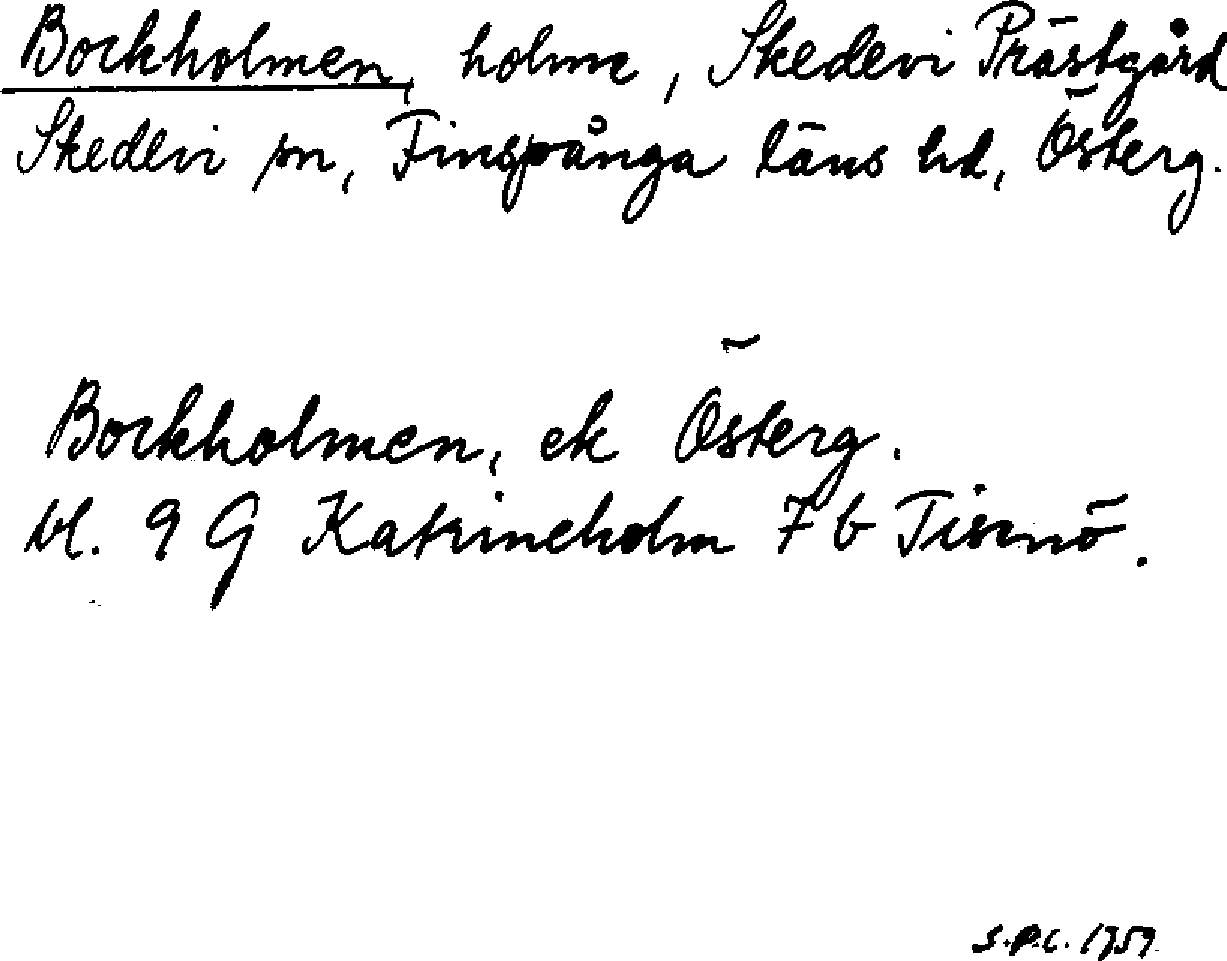 Bockholmen, holme, Skedevi Prästgård
Skedevi sn, Finspånga läns hd, Österg.
Bockholmen, ek Österg.
bl. 9 G Katrineholm 7 b Tisenö.
S.P.C. 1959